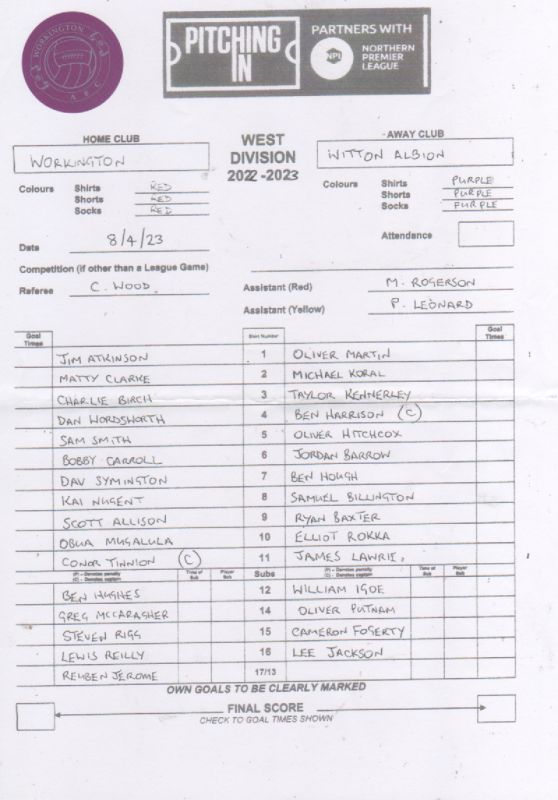 WORKINGTON
Reds
A F C
PITCHING IN
PARTNERS WITH
NPL
NORTHERN PREMIER LEAGUE
HOME CLUB
WEST DIVISION 2022 -2023
AWAY CLUB
WORKINGTON
WITTON ALBION
Colours Shirts RED
Shorts RED
Socks RED
Colours Shirts PURPLE
Shorts PURPLE
Socks PURPLE
Date 8/4/23
Attendance
Competition (if other than a League Game)
Referee C. WOOD.
Assistant (Red) M. ROGERSON
Assistant (Yellow) P. LEONARD
Goal Times Shirt Number Goal Times
JIM ATKINSON 1 OLIVER MARTIN
MATTY CLARKE 2 MICHAEL KORAL
CHARLIE BIRCH 3 TAYLOR KENNERLEY
DAN WORDSWORTH 4 BEN HARRISON (C)
SAM SMITH 5 OLIVER HITCHCOX
BOBBY CARROLL 6 JORDAN BARROW
DAV SYMINGTON 7 BEN HOUGH
KAI NUGENT 8 SAMUEL BILLINGTON
SCOTT ALLISON 9 RYAN BAXTER
OBUA MUGALULA 10 ELLIOT ROKKA
CONOR TINNION (C) 11 JAMES LAWRIE.
(P) - Denotes penalty (C) - Denotes captain Time of Sub Player Sub Subs (P) - Denotes penalty (C) - Denotes captain Time of Sub Player Sub
BEN HUGHES 12 WILLIAM IGOE
GREG MCCARAGHER 14 OLIVER PUTNAM
STEVEN RIGG 15 CAMERON FOGERTY
LEWIS REILLY 16 LEE JACKSON
REUBEN JEROME 17/13
OWN GOALS TO BE CLEARLY MARKED
FINAL SCORE
CHECK TO GOAL TIMES SHOWN